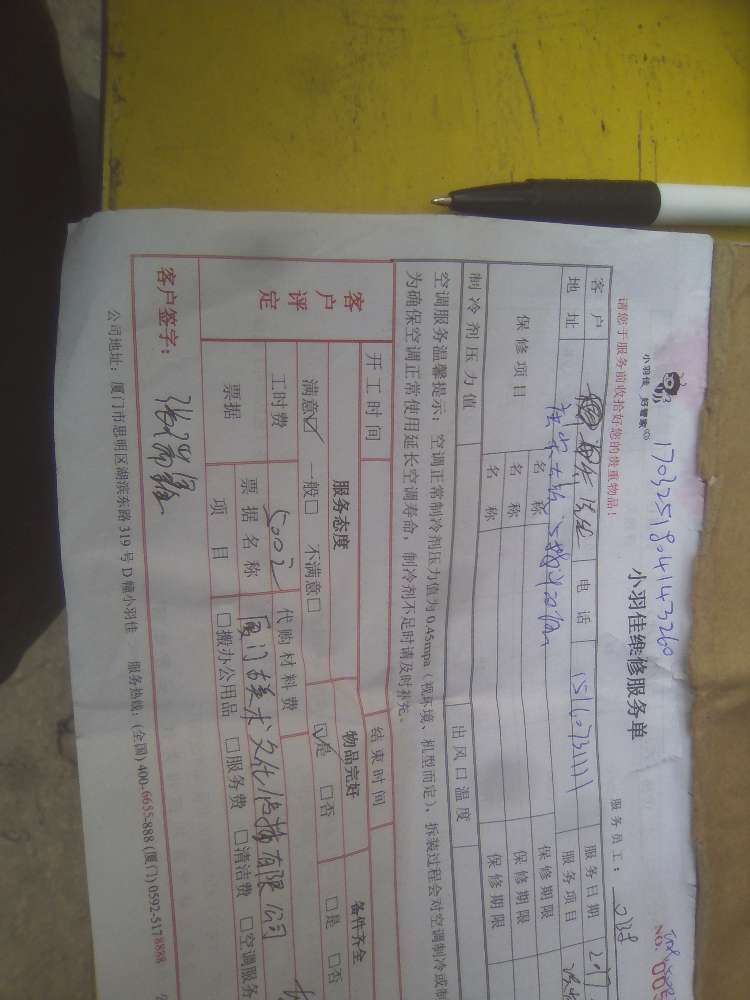 小羽佳 好管家
17032518041433260
小羽佳维修服务单
NO:
请您于服务前收拾好您的贵重物品！
服务员工：
客户 电话 15160731111 服务日期
地址 服务项目
保修项目 名称 保修期限
名称 保修期限
名称 保修期限
制冷剂压力值 出风口温度
空调服务温馨提示：空调正常制冷剂压力值为0.45mpa（视环境、机型而定），拆装过程会对空调制冷或制
为确保空调正常使用延长空调寿命，制冷剂不足时请及时补充。
开工时间 结束时间
客户评定 服务态度 物品完好 备件齐全
满意☑ 一般□ 不满意□ ☑是 □否 □是 □否
工时费 500元 代购材料费
票据 票据名称 厦门 文化传播有限公司
项目 □搬办公用品 □服务费 □清洁费 □空调服务
客户签字：
公司地址：厦门市思明区湖滨东路319号D幢小羽佳 服务热线：(全国) 400-6655-888 (厦门) 0592-5178888